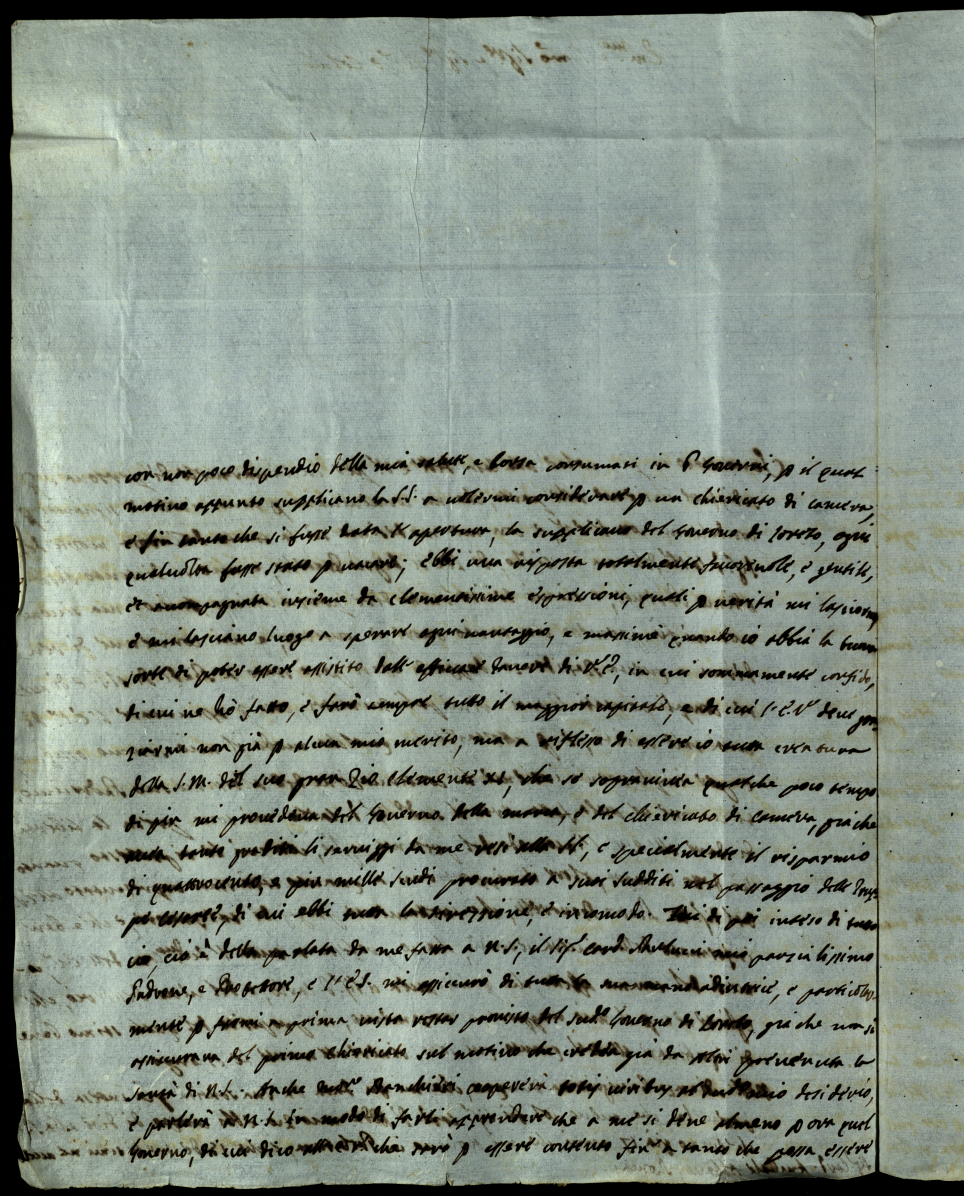 con non poco dispendio della mia salute, e borsa consumati in Governi, p il qual
motivo appunto supplicano la S.S. a volermi considerare p un chiericato di camera,
e fin tanto che si fusse data l'apertura, la supplicavo del Governo di Loreto, ogni
qualvolta fusse stato p vacare; ebbi una risposta totalmente favorevole, e gentile,
et accompagnata insieme da clementissime espressioni, quali p verità mi lasciorno,
e mi lasciano luogo a sperare ogni vantaggio, e massime quando io abbia la buona
sorte di poter essere assistito dall' efficace favore di V.E., in cui sommamente confido,
di cui ne hò fatto, e farò sempre tutto il maggior capitale, e di cui l'E.V. deve gra
ziarmi non già p alcun mio merito, ma a riflesso di essere io creatura
della S.M. del suo gran Zio Clemente XI, che se sopraviveva qualche poco tempo
di più mi provedeva del Governo della marca, e del chiericato di camera, già che
tanto graditi li servizzi da me resi alla S.S., e specialmente il risparmio
di quattrocento, e più mille scudi procurato a suoi sudditi nel passaggio delle Trup
pe Cesaree, di cui ebbi la direzzione, e incomodo. di poi inteso di tutto
ciò, ciò è della parlata da me fatta a N.S., il Sig. Card. Paulucci mio parzialissimo
Padrone, e Protettore, e l'E.S. mi assicurò di tutta la sua mano adiutrice, e particolar-
mente p farmi a prima vista restar provisto del sud.º Governo di Loreto, già che non si
assicurava del primo chiericato sul motivo che credea già da altri prevenuta la
Santà di N.S. Anche Mons.r Banchieri coopererà totis viribus al mio desiderio,
e parlerà a N.S. in modo di farli apprendere che a me si deve almeno p ora quel
Governo, di cui dico che sarò p essere contento fin a tanto che possa essere